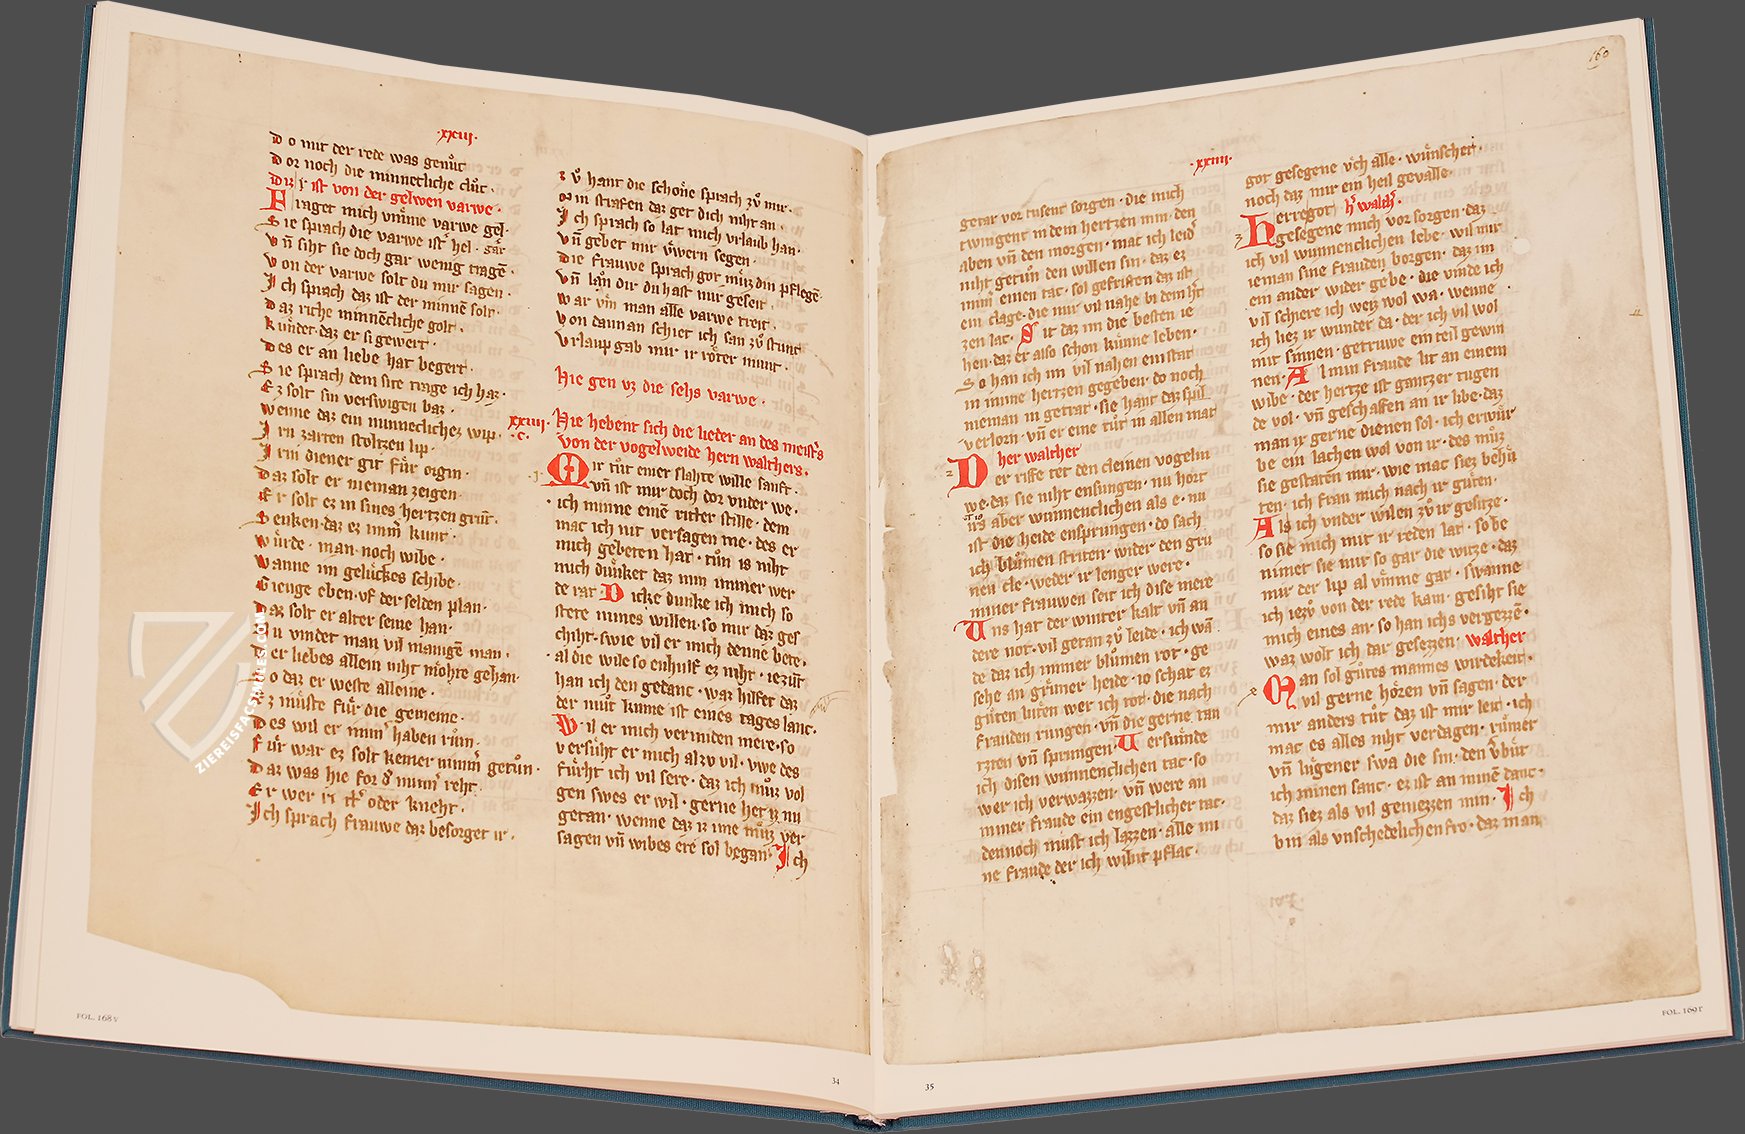 ·xxiij·
Do mit der rede was genuͦc
Dor noch die minnecliche cluͦc·
Diz ist von der gelwen varwe·
Fraget mich vmme varwe gel·
Sie sprach die varwe ist hel· gar
Vn̄ siht sie doch gar wenig tragē·
Von der varwe solt du mir sagen·
Ich sprach daz ist der minnē solt·
Daz riche minnēcliche golt·
Kuͤndet·daz er si gewert·
Des er an liebe hat begert·
Sie sprach dem site trage ich haz·
Ez solt sin verswigen baz·
Wenne daz ein minneclichez wip·
Irn zarten stoltzen lip·
Irm diener git fuͤr eigin·
Daz solt er nieman zeigen·
Er solt ez in sines hertzen grūt·
Senken·daz ez nimm̄ kunt·
Wuͤrde·man·noch wibe·
Wanne im geluͤckes schibe·
Gienge eben·vf der selden plan·
Daz solt er alter seine han·
Nu vindet man vil manigē man·
Der liebes allein niht moͤhte gehan·
So daz er weste alleine·
Ez muͤste fuͤr die gemeine·
Des wil er nimm̄ haben ruͦm·
Fuͤr war ez solt keiner nimm̄ getuͦn·
Daz was hie for d̓ minn̄ reht·
Er wer ri tt̓ oder kneht·
Ich sprach frauwe daz besorget ir·
Zuͦ hant die schoͤne sprach zuͦ mir·
Min strafen daz get dich niht an·
Ich sprach so lat mich vrlaub han·
Vn̄ gebet mir vwern segen·
Die frauwe sprach got muͤz din pflegē·
Vn̄ lan dir du hast mir geseit·
War vm man alle varwe treit·
Von dannan schiet ich san zuͦ stunt
Vrlaup gab mir ir roͤter munt·
Hie gen vz die sehs varwe·
xxiiij· Hie hebent sich die lieder an des meist̓s
·c· von der vogelweide hern walthers·
Mir tuͦt einer slahte wille sanft·
vn̄ ist mir doch dor vnder we·
ich minne einē ritter stille· dem
mac ich nit versagen me·des er
mich gebeten hat·tuͦn is niht
mich duͤnket daz min immer wer
de rat Dicke dunke ich mich so
stete mines willen·so mir daz ges
chiht·swie vil er mich denne bete·
al die wile so enhilf ez niht·iezuͦt
han ich den gedanc·waz hilfet daz
der muͦt kume ist eines tages lanc·
Wil er mich vermiden mere·so
versuͦht er mich alzv vil·vwe des
fuͤrht ich vil sere·daz ich muͦz vol
gen swes er wil·gerne het iz nu
getan·wenne daz iz ime muͦz ver
sagen vn̄ wibes ere sol began·Ich
FOL. 168v
34
160
·xxiiij·
getar vor tusent sorgen·die mich
twingent in dem hertzen min·den
aben vn̄ den morgen·mat ich leid̓
niht getuͦn den willen sin·daz ez
nimm̄ einen tac·sol gefristen daz ist
ein clage·die mir vil nahe bi dem h̓t
zen lac· Sit daz im die besten ie
hen·daz er also schon kunne leben·
So han ich im vil nahen ein stat
in mime hertzen gegeben·do noch
nieman in getrat·sie hant daz spil
verlorn·vn̄ er eine tuͦt in allen mat
her walther
Der riffe tet den cleinen vogelin
we·daz sie niht ensungen·nu hort
irs aber wunnenclichen als e·nu
ist die heide entsprungen·do sach
ich bluͦmen striten·wider den gru
nen cle·weder ir lenger were·
miner frauwen seit ich dise mere
Uns hat der winter kalt vn̄ an
dere not·vil getan zuͦ leide·ich wā
de daz ich immer bluͦmen rot·ge
sehe an gruͤner heide·io schat ez
guͦten luͤten wer ich tot·die nach
frauden rungen·vn̄ die gerne tan
tzten vn̄ sprungen·Versumde
ich disen wunnenclichen tac·so
wer ich verwazzen·vn̄ were an
miner fraude ein engestlicher tac·
dennoch must ich lazzen·alle mi
ne fraude der ich wilnt pflac·
got gesegene vͦch alle·wuͤnschet·
noch daz mir ein heil gevalle·
Herregot h̓ walth̓·
gesegene mich vor sorgen·daz
ich vil wunnenclichen lebe·wil mir
ieman sine frauden borgen·daz im
ein ander wider gebe·die vinde ich
vil schiere ich weiz wol wa·wenne
ich liez ir wunder da·der ich vil wol
mit sinnen·getruwe ein teil gewin
nen· Al min fraude lit an einem
wibe·der hertze ist gantzer tugen
de vol·vn̄ geschaffen an ir libe·daz
man ir gerne dienen sol·ich erwur
be ein lachen wol von ir·des muͦz
sie gestaten mir·wie mac siez behuͤ
ten·ich frau mich nach ir guͤten·
Als ich vnder wilen zuͦ ir gesitze·
so sie mich mit ir reden lat·so be
nimet sie mir so gar·die witze·daz
mir der lip al vmme gat·swanne
ich iezuͦ von der rede kan·gesiht sie
mich eines an·so han ichs vergezzē·
waz wolt ich dar gesezzen· walther
Man sol guͦtes mannes wirdekeit·
vil gerne hoͤren vn̄ sagen·der
mir anders tuͦt daz ist mir leit·ich
mac es alles niht verdagen·ruͤmer
vn̄ luͤgener swa die sin·den v̓buͤt
ich minen sanc·ez ist an minē danc·
daz siez als vil geniezzen min· Ich
bin als vnschedelichen fro·daz man
FOL. 169r
35
ZIEREISFACSIMILES.COM